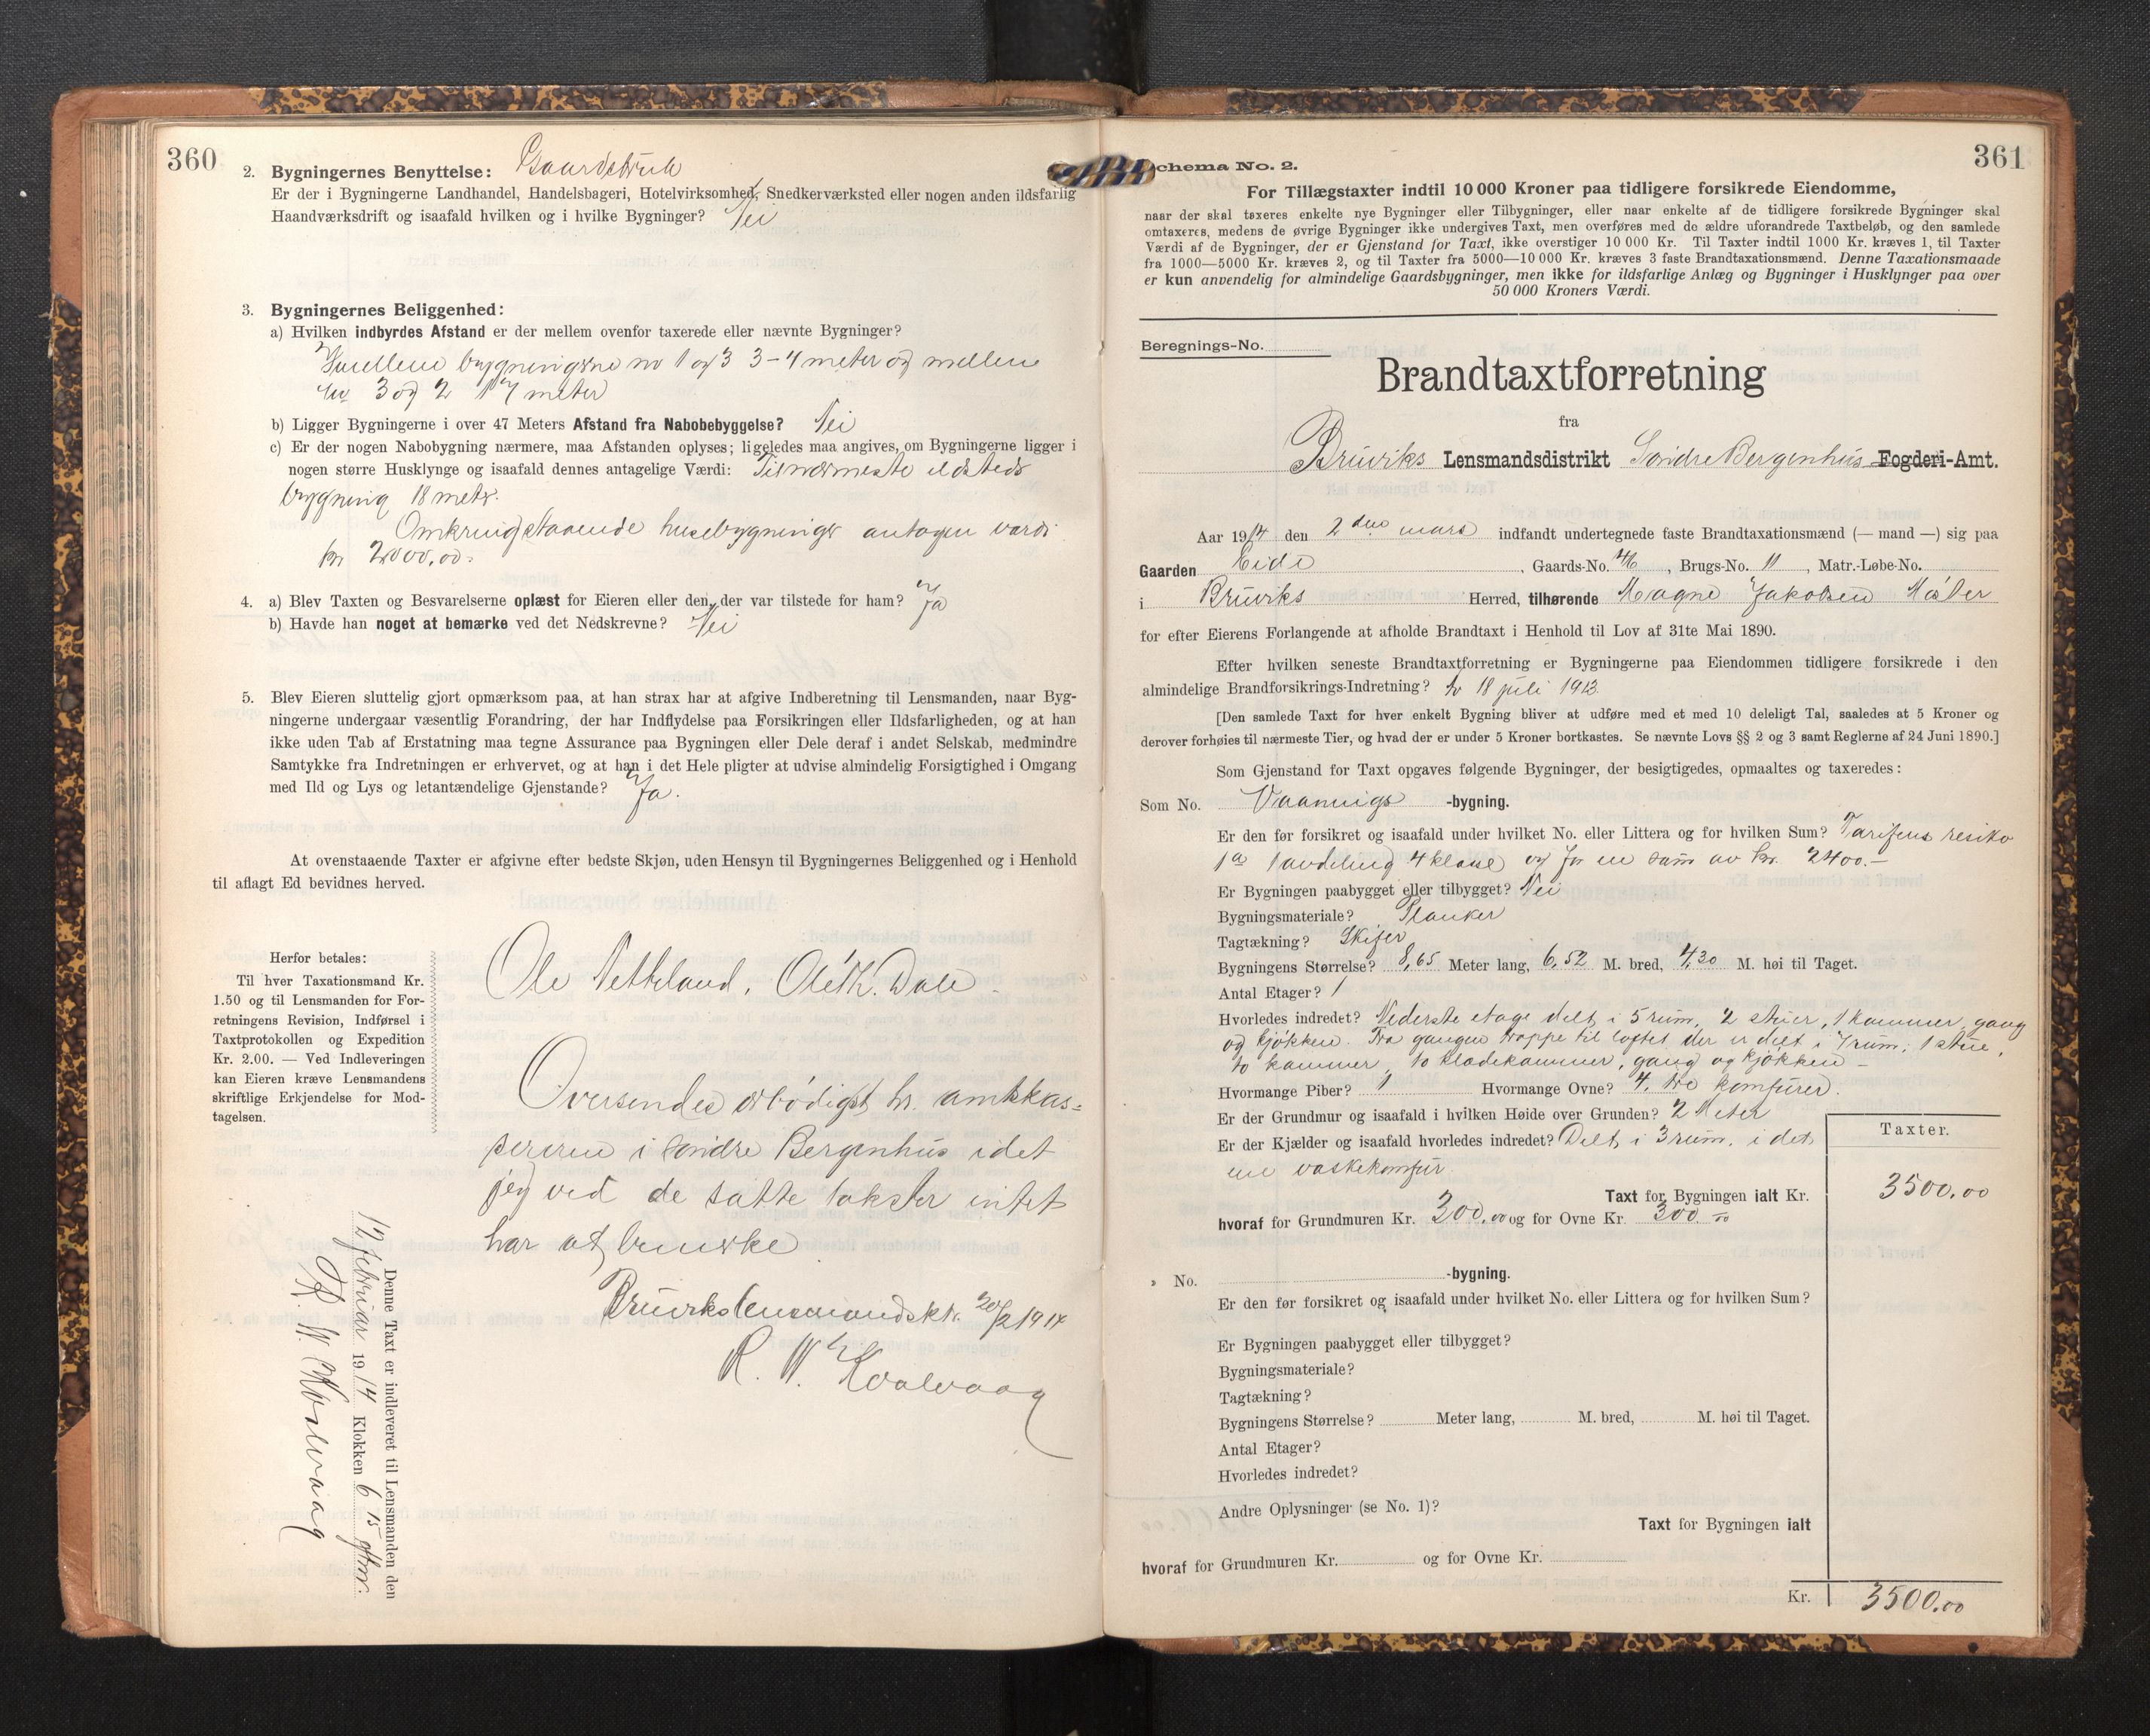 360
2. Bygningernes Benyttelse: Gaardsbruk
Er der i Bygningerne Landhandel, Handelsbageri, Hotelvirksomhed, Snedkerværksted eller nogen anden ildsfarlig
Haandværksdrift og isaafald hvilken og i hvilke Bygninger? Nei
3. Bygningernes Beliggenhed:
a) Hvilken indbyrdes Afstand er der mellem ovenfor taxerede eller nævnte Bygninger?
Imellem bygningerne no 1 og 3 3-4 meter og mellem
no 3 og 2 17 meter
b) Ligger Bygningerne i over 47 Meters Afstand fra Nabobebyggelse? Nei
c) Er der nogen Nabobygning nærmere, maa Afstanden oplyses; ligeledes maa angives, om Bygningerne ligger i
nogen større Husklynge og isaafald dennes antagelige Værdi: Til nærmeste ildsteds
bygning 18 meter.
Omkringstaaende husebygninger antagen værdi
kr 2000,00.
4. a) Blev Taxten og Besvarelserne oplæst for Eieren eller den, der var tilstede for ham? Ja
b) Havde han noget at bemærke ved det Nedskrevne? Nei
5. Blev Eieren sluttelig gjort opmærksom paa, at han strax har at afgive Indberetning til Lensmanden, naar Byg-
ningerne undergaar væsentlig Forandring, der har Indflydelse paa Forsikringen eller Ildsfarligheden, og at han
ikke uden Tab af Erstatning maa tegne Assurance paa Bygningen eller Dele deraf i andet Selskab, medmindre
Samtykke fra Indretningen er erhvervet, og at han i det Hele pligter at udvise almindelig Forsigtighed i Omgang
med Ild og Lys og letantændelige Gjenstande? Ja.
At ovenstaaende Taxter er afgivne efter bedste Skjøn, uden Hensyn til Bygningernes Beliggenhed og i Henhold
til aflagt Ed bevidnes herved.
Herfor betales:
Til hver Taxationsmand Kr.
1.50 og til Lensmanden for For-
retningens Revision, Indførsel i
Taxtprotokollen og Expedition
Kr. 2.00. — Ved Indleveringen
kan Eieren kræve Lensmandens
skriftlige Erkjendelse for Mod-
tagelsen.
Ole Netteland. Ole K. Dale
Oversendes ærbødigst hr. amtskas-
sereren i søndre Bergenhus idet
jeg ved de satte takster intet
har at bemerke
Bruvik lensmandsktr. 20/2 1914
R. W. Kvalvaag
Denne Taxt er indleveret til Lensmanden den
12 februar 1914 Klokken 6 15 efm.
R. W. Kvalvaag
361
chema No. 2.
For Tillægstaxter indtil 10 000 Kroner paa tidligere forsikrede Eiendomme,
naar der skal taxeres enkelte nye Bygninger eller Tilbygninger, eller naar enkelte af de tidligere forsikrede Bygninger skal
omtaxeres, medens de øvrige Bygninger ikke undergives Taxt, men overføres med de ældre uforandrede Taxtbeløb, og den samlede
Værdi af de Bygninger, der er Gjenstand for Taxt, ikke overstiger 10 000 Kr. Til Taxter indtil 1000 Kr. kræves 1, til Taxter
fra 1000—5000 Kr. kræves 2, og til Taxter fra 5000—10 000 Kr. kræves 3 faste Brandtaxationsmænd. Denne Taxationsmaade
er kun anvendelig for almindelige Gaardsbygninger, men ikke for ildsfarlige Anlæg og Bygninger i Husklynger paa over
50 000 Kroners Værdi.
Beregnings-No.
Brandtaxtforretning
fra
Bruviks Lensmandsdistrikt Søndre Bergenhus Fogderi-Amt.
Aar 1914 den 2den mars indfandt undertegnede faste Brandtaxationsmænd (— mand —) sig paa
Gaarden Eide, Gaards-No. 46, Brugs-No. 11, Matr.-Løbe-No.
i Bruviks Herred, tilhørende Magne Jakobsen
for efter Eierens Forlangende at afholde Brandtaxt i Henhold til Lov af 31te Mai 1890.
Efter hvilken seneste Brandtaxtforretning er Bygningerne paa Eiendommen tidligere forsikrede i den
almindelige Brandforsikrings-Indretning? av 18 juli 1913
[Den samlede Taxt for hver enkelt Bygning bliver at udføre med et med 10 deleligt Tal, saaledes at 5 Kroner og
derover forhøies til nærmeste Tier, og hvad der er under 5 Kroner bortkastes. Se nævnte Lovs §§ 2 og 3 samt Reglerne af 24 Juni 1890.]
Som Gjenstand for Taxt opgaves følgende Bygninger, der besigtigedes, opmaaltes og taxeredes:
Som No. Vaanings -bygning.
Er den før forsikret og isaafald under hvilket No. eller Littera og for hvilken Sum? Tarifens resiko
1a 1 avdeling 4 klasse og for en sum av kr. 2400.—
Er Bygningen paabygget eller tilbygget? Nei
Bygningsmateriale? Planker
Tagtækning? Skifer
Bygningens Størrelse? 8,65 Meter lang, 6,52 M. bred, 4,30 M. høi til Taget.
Antal Etager? 1
Hvorledes indredet? Nederste etage delt i 5 rum, 2 stuer, 1 kammer, gang
og kjøkken. Fra gangen trappe til loftet der er delt i 7 rum; 1 stue,
to kammer, to klædekammer, gang og kjøkken —
Hvormange Piber? 1 Hvormange Ovne? 4, tre komfurer.
Er der Grundmur og isaafald i hvilken Høide over Grunden? 2 Meter
Er der Kjælder og isaafald hvorledes indredet? Delt i 3 rum, i det
ene vaskekomfur.
Taxter.
Taxt for Bygningen ialt Kr. 3500,00
hvoraf for Grundmuren Kr. 300,00 og for Ovne Kr. 300.00
» No. -bygning.
Er den før forsikret og isaafald under hvilket No. eller Littera og for hvilken Sum?
Er Bygningen paabygget eller tilbygget?
Bygningsmateriale?
Tagtækning?
Bygningens Størrelse? Meter lang, M. bred, M. høi til Taget.
Antal Etager?
Hvorledes indredet?
Andre Oplysninger (se No. 1)?
Taxt for Bygningen ialt
hvoraf for Grundmuren Kr. og for Ovne Kr.
Kr. 3500,00